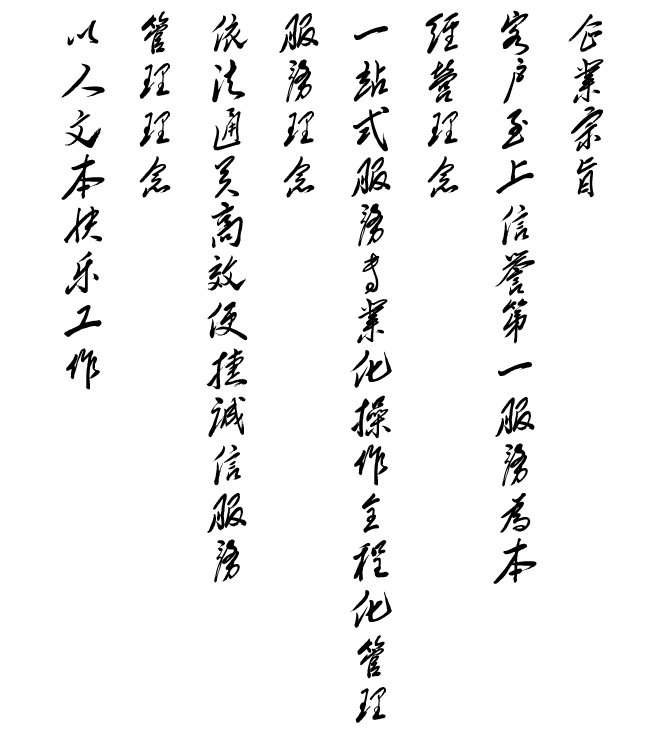 企業宗旨
客户至上信譽第一服務為本
經營理念
一站式服務专業化操作全程化管理
服務理念
依法通关高效便捷誠信服務
管理理念
以人文本快乐工作